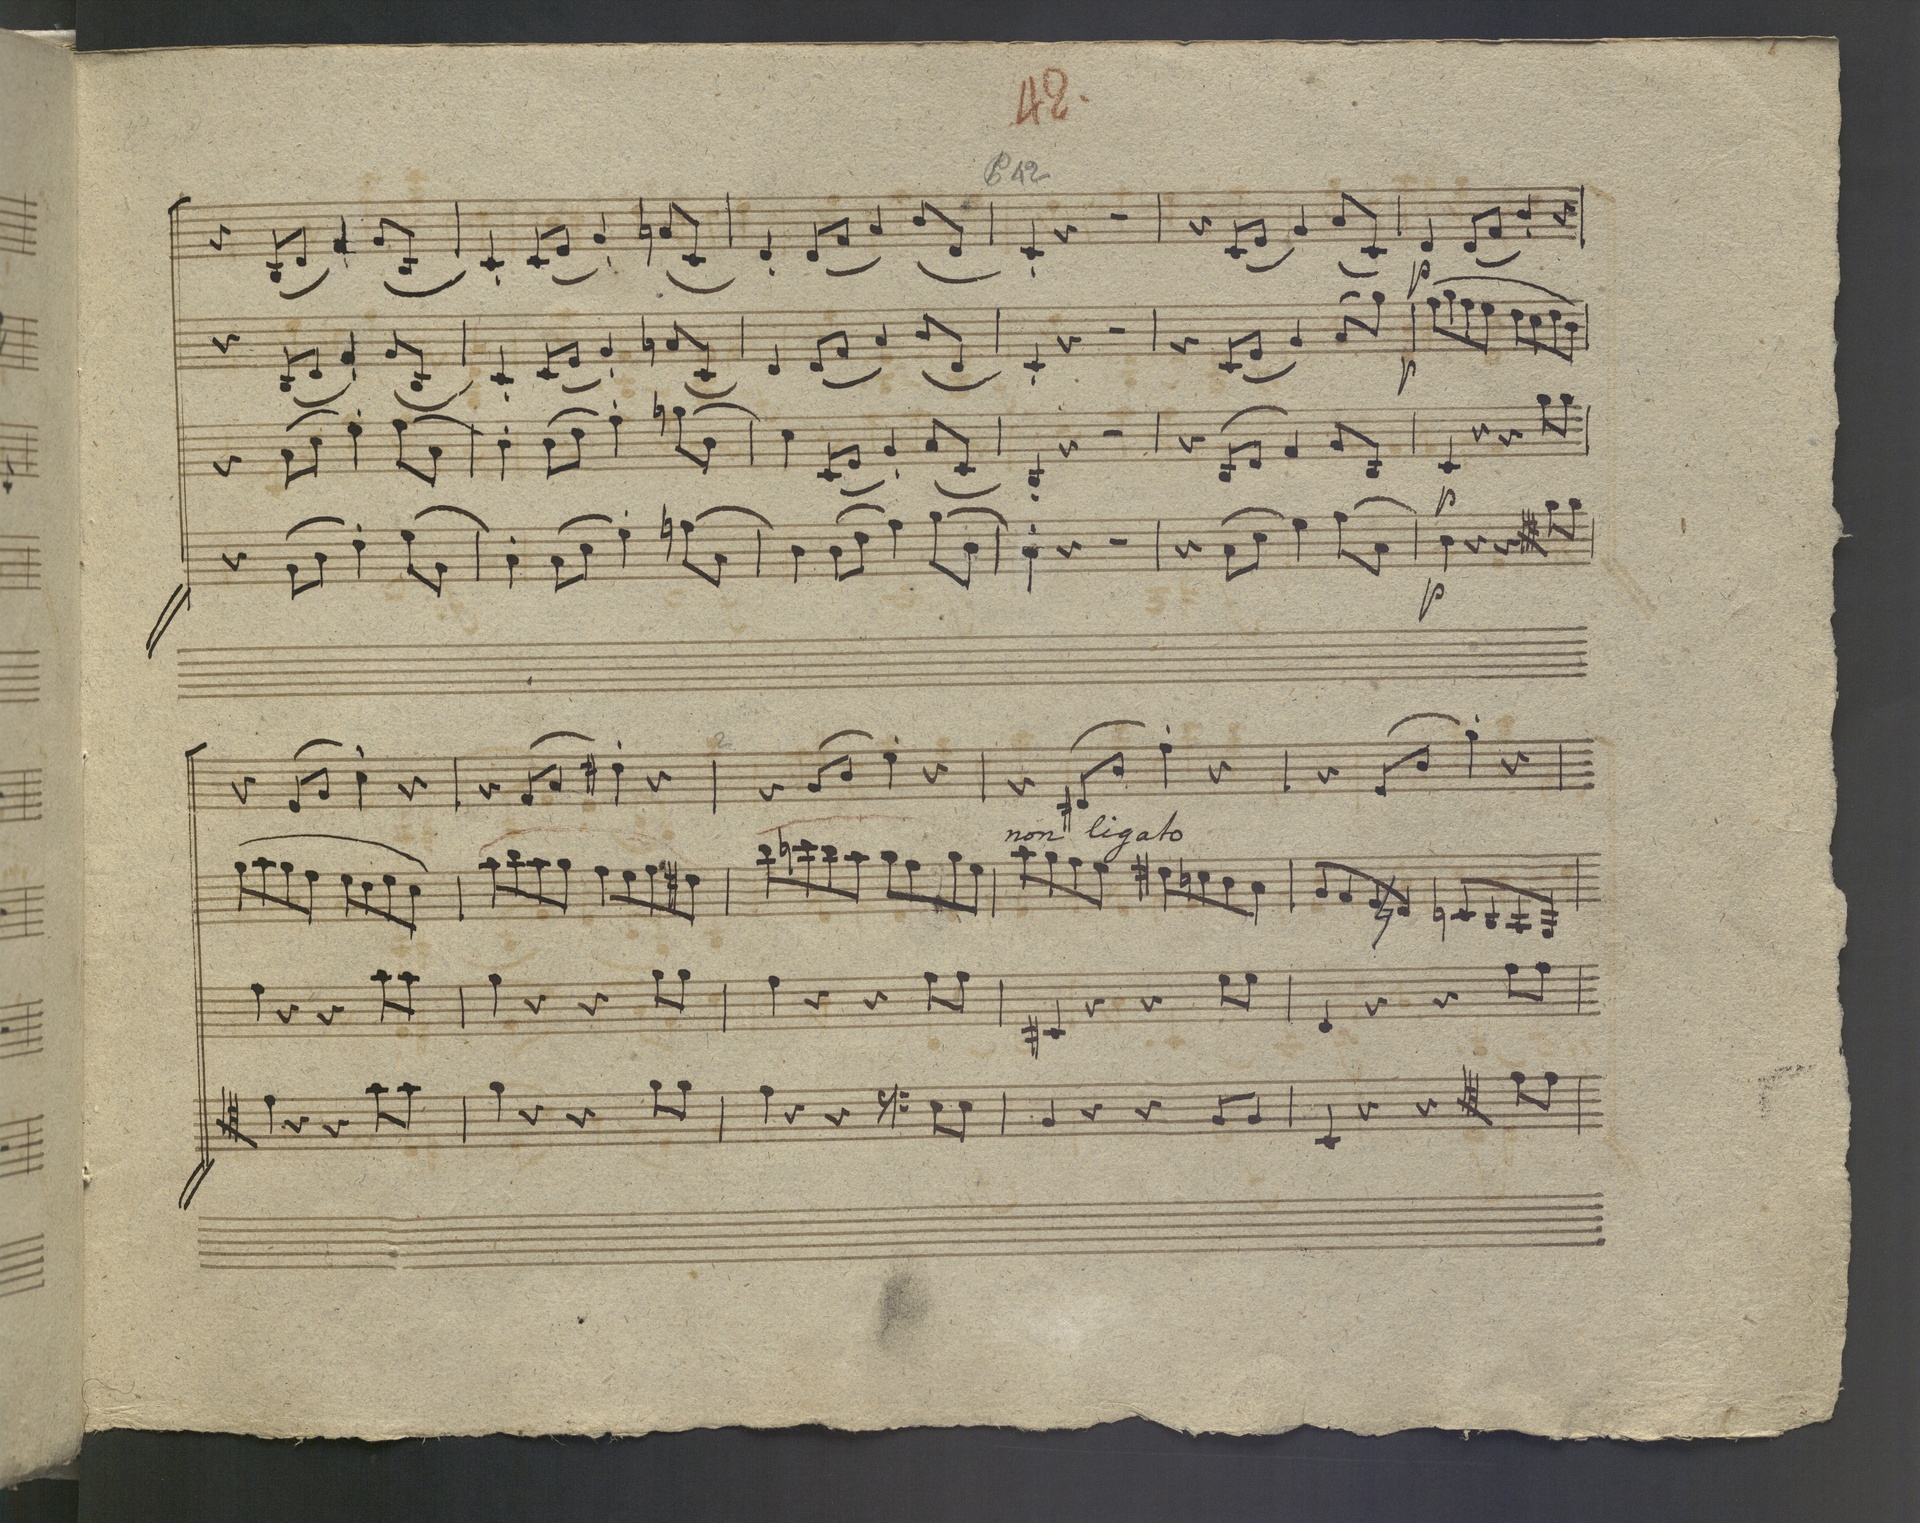 42.
P 42
p
p
p
p
2
non ligato